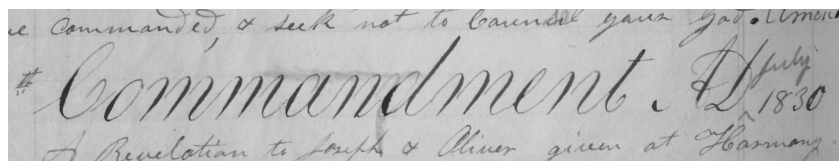 commanded, & seek not to Council your God. Amen
# Commandment AD July 1830
A Revelation to Joseph & Oliver given at Harmony